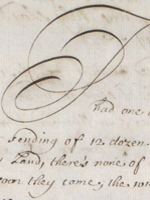 had one
sending of 12 dozen
Land, there's none of
soon they come, the